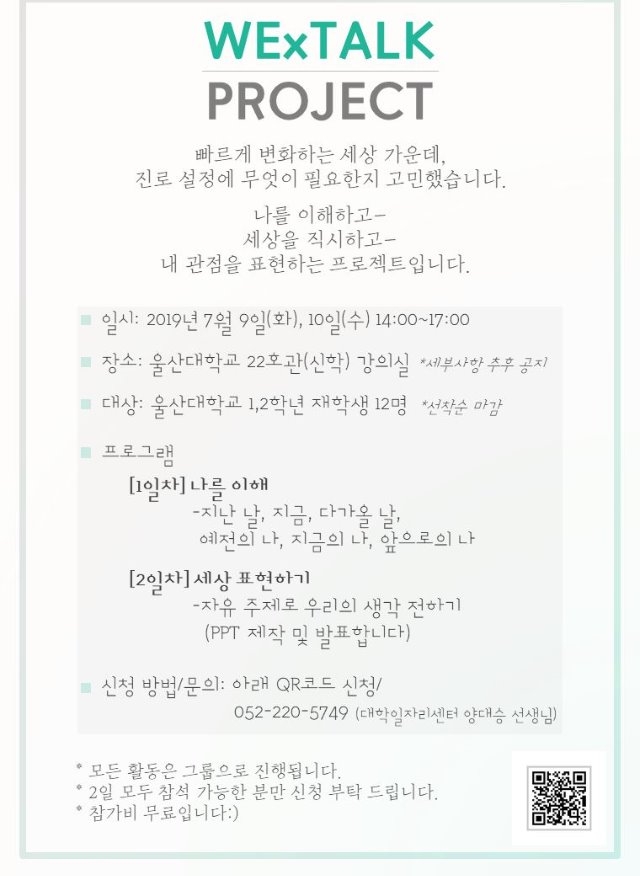 WExTALK
PROJECT
빠르게 변화하는 세상 가운데,
진로 설정에 무엇이 필요한지 고민했습니다.
나를 이해하고-
세상을 직시하고-
내 관점을 표현하는 프로젝트입니다.
일시: 2019년 7월 9일(화), 10일(수) 14:00~17:00
장소: 울산대학교 22호관(신학) 강의실 *세부사항 추후 공지
대상: 울산대학교 1,2학년 재학생 12명 *선착순 마감
프로그램
[1일차] 나를 이해
-지난 날, 지금, 다가올 날,
예전의 나, 지금의 나, 앞으로의 나
[2일차] 세상 표현하기
-자유 주제로 우리의 생각 전하기
(PPT 제작 및 발표합니다)
신청 방법/문의: 아래 QR코드 신청/
052-220-5749 (대학일자리센터 양대승 선생님)
* 모든 활동은 그룹으로 진행됩니다.
* 2일 모두 참석 가능한 분만 신청 부탁 드립니다.
* 참가비 무료입니다:)